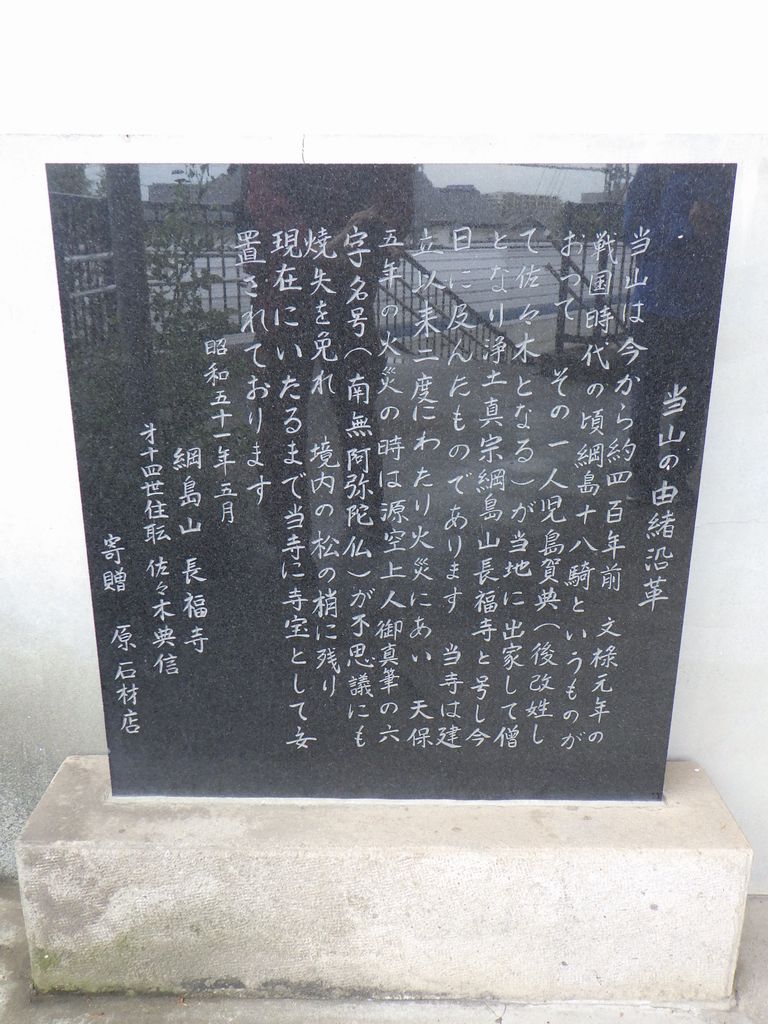 当山の由緒沿革
当山は今から約四百年前　文禄元年の
戦国時代の頃綱島十八騎というものが
おって　その一人児島賀典（後改姓し
て佐々木となる）が当地に出家して僧
となり浄土真宗綱島山長福寺と号し今
日に及んだものであります　当寺は建
立以来二度にわたり火災にあい　天保
五年の火災の時は源空上人御真筆の六
字名号（南無阿弥陀仏）が不思議にも
焼失を免れ　境内の松の梢に残り
現在にいたるまで当寺に寺宝として安
置されております
昭和五十一年五月
綱島山　長福寺
才十四世住職　佐々木典信
寄贈　原石材店